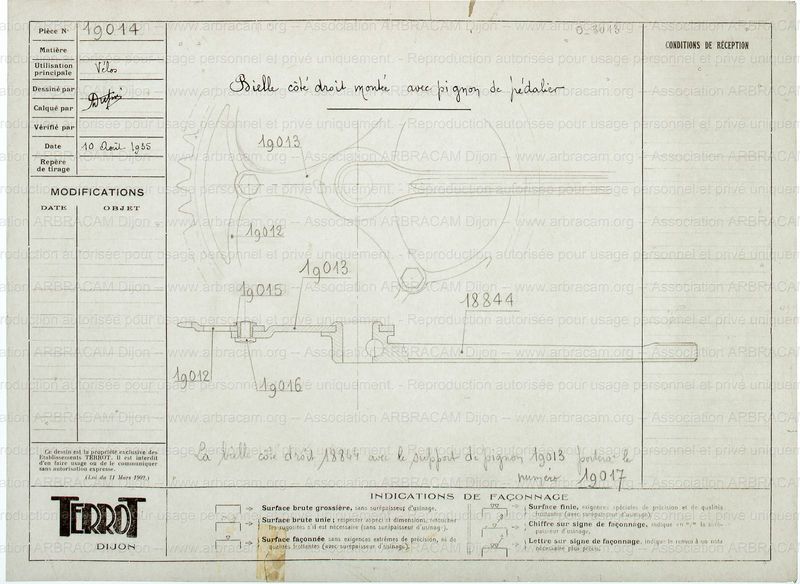 Pièce N° 19014
Matière
Utilisation principale Vélos
Dessiné par
Calqué par
Vérifié par
Date 10 Août 1935
Repère de tirage
MODIFICATIONS
DATE OBJET
Ce dessin est la propriété exclusive des
Etablissements TERROT. Il est interdit
d'en faire usage ou de le communiquer
sans autorisation expresse.
(Loi du 11 Mars 1902.)
TERROT
DIJON
0-3018
CONDITIONS DE RÉCEPTION
Bielle côté droit montée avec pignon de pédalier
19013
19012
19013
19015
18844
19012
19016
La bielle côté droit 18844 avec le support de pignon 19013 portera le
numéro 19017
INDICATIONS DE FAÇONNAGE
Surface brute grossière, sans surépaisseur d'usinage.
Surface brute unie; respecter aspect et dimensions, retoucher
les rugosités s'il est nécessaire (sans surépaisseur d'usinage).
Surface façonnée sans exigences extrêmes de précision, ni de
qualités frottantes (avec surépaisseur d'usinage).
Surface finie, exigences spéciales de précision et de qualités
frottantes (avec surépaisseur d'usinage).
Chiffre sur signe de façonnage, indique en m/m la surépaisseur d'usinage.
Lettre sur signe de façonnage, indique le renvoi à une note
nécessaire plus précise.
Reproduction autorisée pour usage personnel et privé uniquement. - www.arbracam.org -- Association ARBRACAM Dijon